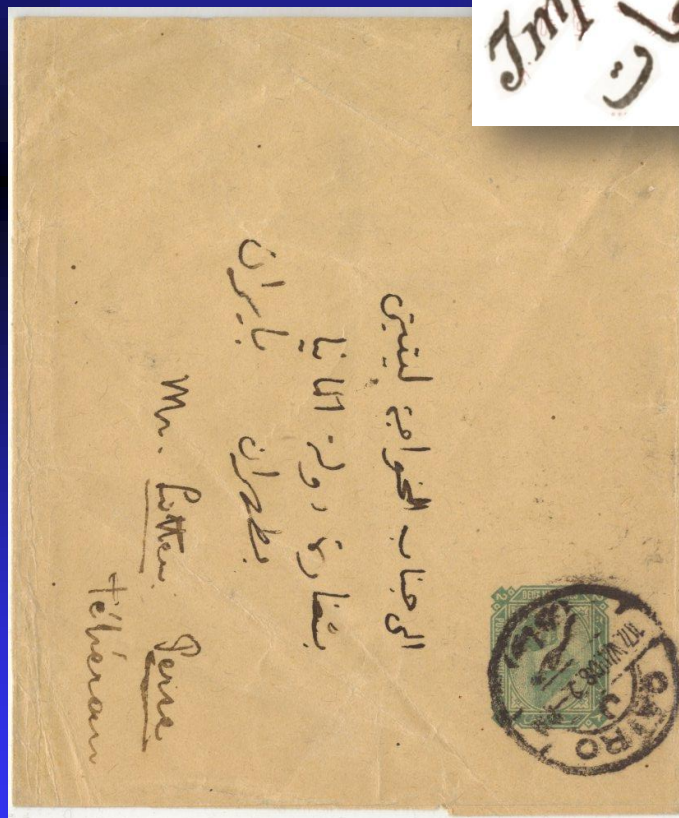 Imp
الى جناب الخواجة ليتن
بسفارة دولة المانيا
بطهران بايران
Mr. Litten Perse
Téhéran
CAIRO